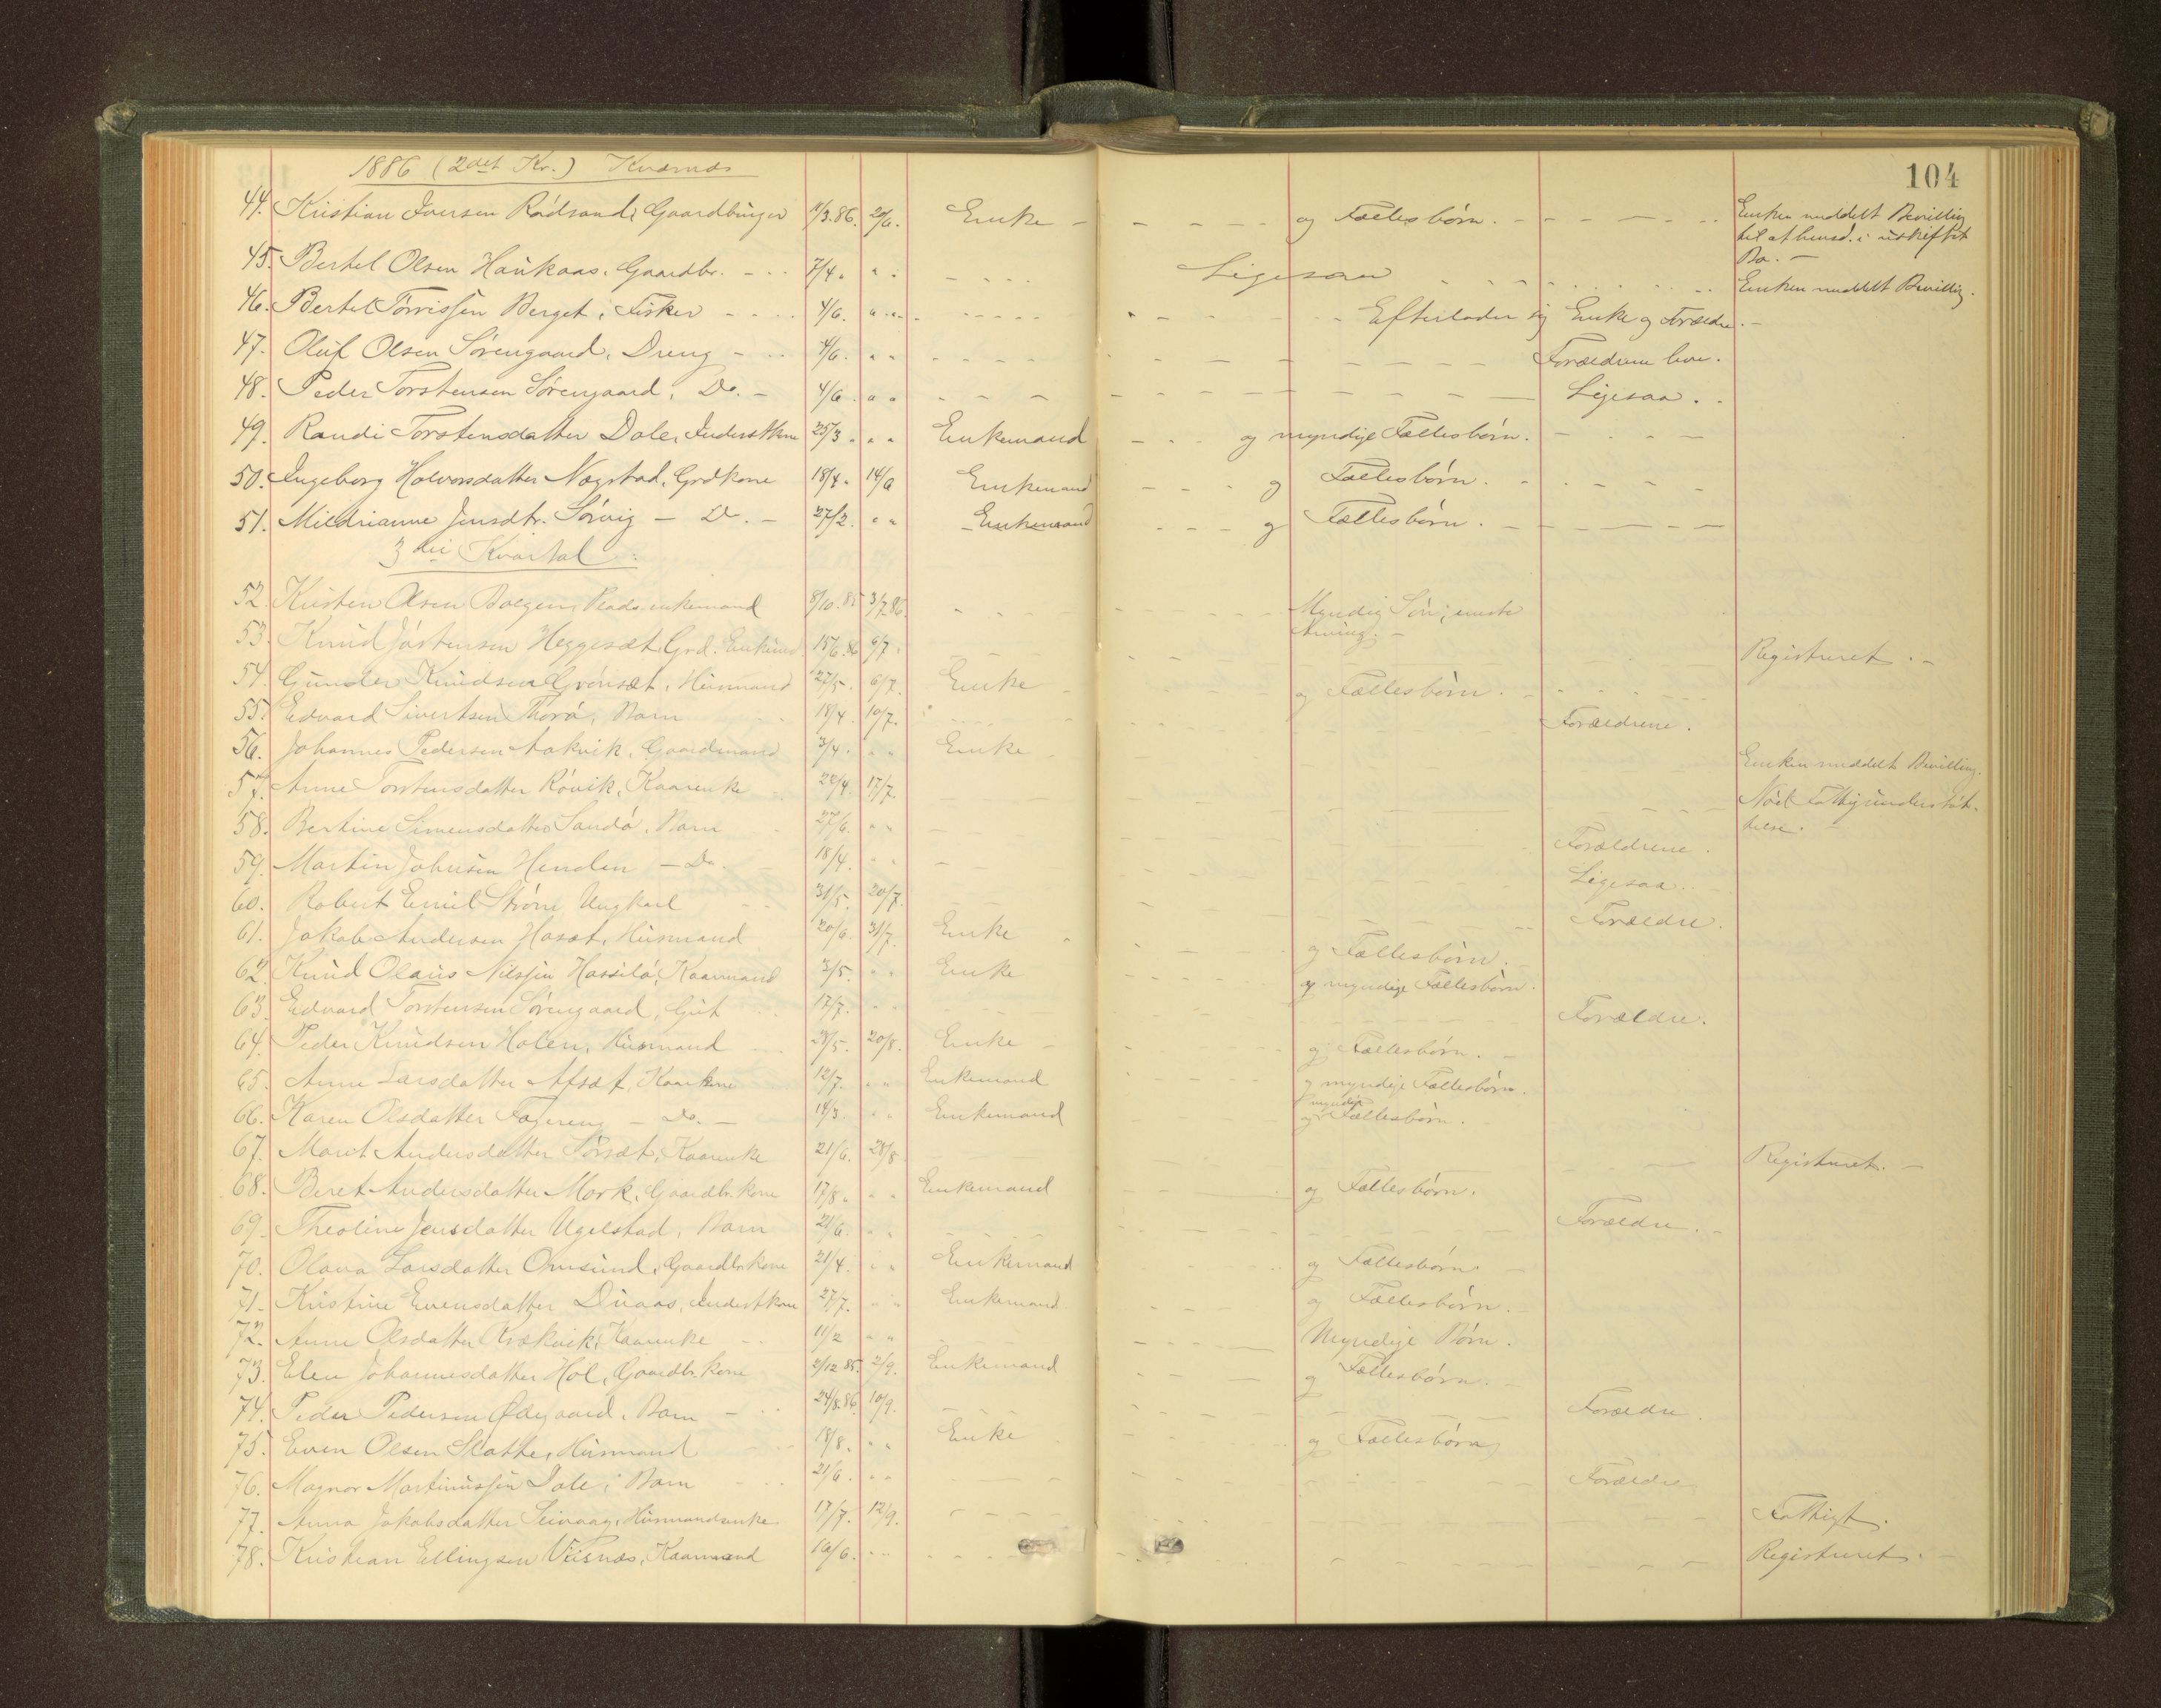 1886 (2det Kv.) Kvernes
104
44. Kristian Iversen Rødsand, Gaardbruger 11/3.86. 29/6. Enke - og Fællesbørn. - Enken meddelt Bevilling
til at hensid. i uskiftet
Bo. -
45. Bertel Olsen Haukaas, Gaardbr. 7/4. " . Ligesaa Enken meddelt Bevilling.
46. Bertel Torrissen Berget, Fisker 4/6. " " Efterlader sig Enke og Forældre. -
47. Oluf Olsen Sørengaard, Dreng 4/6. " " Forældrene leve.
48. Peder Torstensen Sørengaard, Do. - 4/6. " " Ligesaa.
49. Randi Torstensdatter Dale, Inderstkone 25/3. " " Enkemand og myndige Fællesbørn.
50. Ingeborg Halvorsdatter Nægstad, Grdkone 18/4. 14/6 Enkemand og Fællesbørn.
51. Mildrianne Jensdtr. Sørvig - Do. - 27/2. " " Enkemand og Fællesbørn.
3die Kvartal.
52. Kristen Olsen Bolgen, Pladsenkemand 8/10.85 3/7.86. Myndig Søn, eneste
Arving. -
53. Knud Jørstensen Heggeset, Grd. Enkemd. 15/6.86 6/7. Registreret. -
54. Gunder Knudsen Grønset, Husmand 27/5. 6/7. Enke og Fællesbørn.
55. Edvard Sivertsen Thorø, Barn 18/4. 10/7. Forældrene.
56. Johannes Pedersen Aakvik, Gaardmand 3/4. " " Enke Enken meddelt Bevilling.
57. Anne Torstensdatter Røvik, Kaarenke 22/4. 17/7. Nød Fattigunderstøt-
telse. -
58. Bertine Simensdatter Sandø, Barn 27/6. " " Forældrene.
59. Martin Johnsen Henden - Do. 18/4. " " Ligesaa.
60. Robert Emil Strøm Ungkarl 31/5. 20/7. Forældre.
61. Jakob Andersen Haset, Husmand 20/6. 31/7. Enke og Fællesbørn.
62. Knud Olaus Nilssen Hassilø, Kaarmand 3/5. " " Enke og myndige Fællesbørn.
63. Edvard Torstensen Sørengaard, Gut 17/7. " " Forældre.
64. Peder Knudsen Holen, Husmand 28/5. 20/8. Enke og Fællesbørn. -
65. Anne Larsdatter Afset, Kaarkone 12/7. " " Enkemand og myndige Fællesbørn.
66. Karen Olsdatter Fagereng - Do. - 14/3. " " Enkemand og myndige Fællesbørn.
67. Marit Andersdatter Sørset, Kaarenke 21/6. 28/8. Registreret. -
68. Beret Andersdatter Mork, Gaardbr.kone 17/8. " " Enkemand og Fællesbørn.
69. Theoline Jensdatter Ugelstad, Barn 21/6. " " Forældre. -
70. Olava Larsdatter Omsund, Gaardbr.kone 21/4. " " Enkemand og Fællesbørn.
71. Kristine Evensdatter Duaas, Inderstkone 27/7. " " Enkemand og Fællesbørn. -
72. Anne Olsdatter Krækvik, Kaarenke 11/2 " " Myndige Børn.
73. Elen Johannesdatter Hol, Gaardbr.kone 2/12 85. 2/9. Enkemand og Fællesbørn. -
74. Peder Pedersen Ødegaard, Barn 24/8.86. 10/9. Forældre.
75. Even Olsen Slatte, Husmand 18/8. " " Enke og Fællesbørn
76. Magnor Martinussen Dale, Barn 21/6. " " Forældre
77. Anna Jakobsdatter Seivaag, Husmandsenke 17/7. 12/9. Fattigt.
78. Kristian Ellingsen Visnæs, Kaarmand 16/6. " " Registreret. -